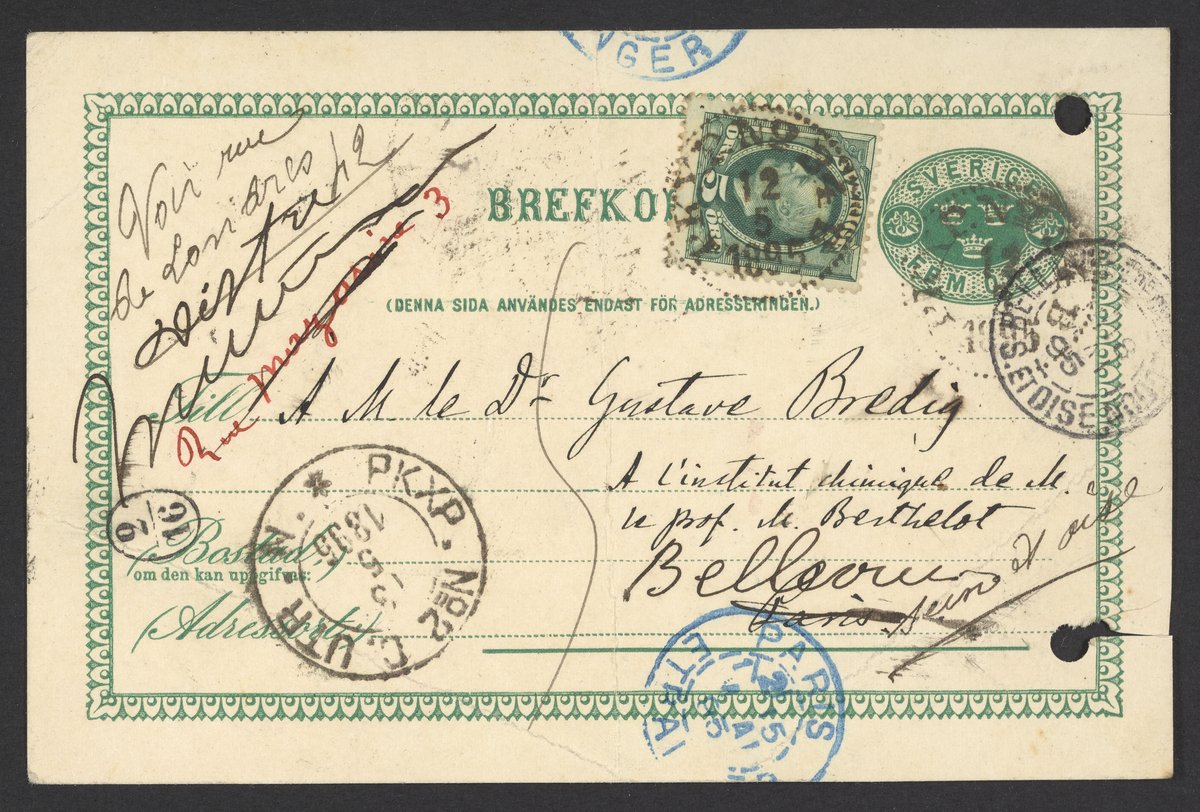 GER
BREFKO
SVERIGE
FEM Ö
5
12
5
1895
(DENNA SIDA ANVÄNDES ENDAST FÖR ADRESSERINGEN.)
Voir rue
de Londres
12
Rue 3
Till
A M le Dr Gustave Bredig
A l'institut chimique de M.
le prof. M. Berthelot
Bellevue
Paris Seine et Oise
Bostad,
om den kan uppgifvas:
(Adressort)
PKXP. No 2 C. UTR. N.
1895
ET OISE
95
PARIS
ETRANGER